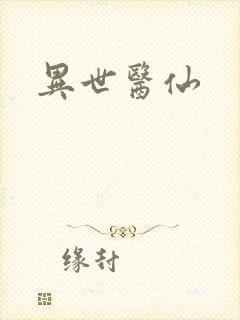 異世醫仙
缘封